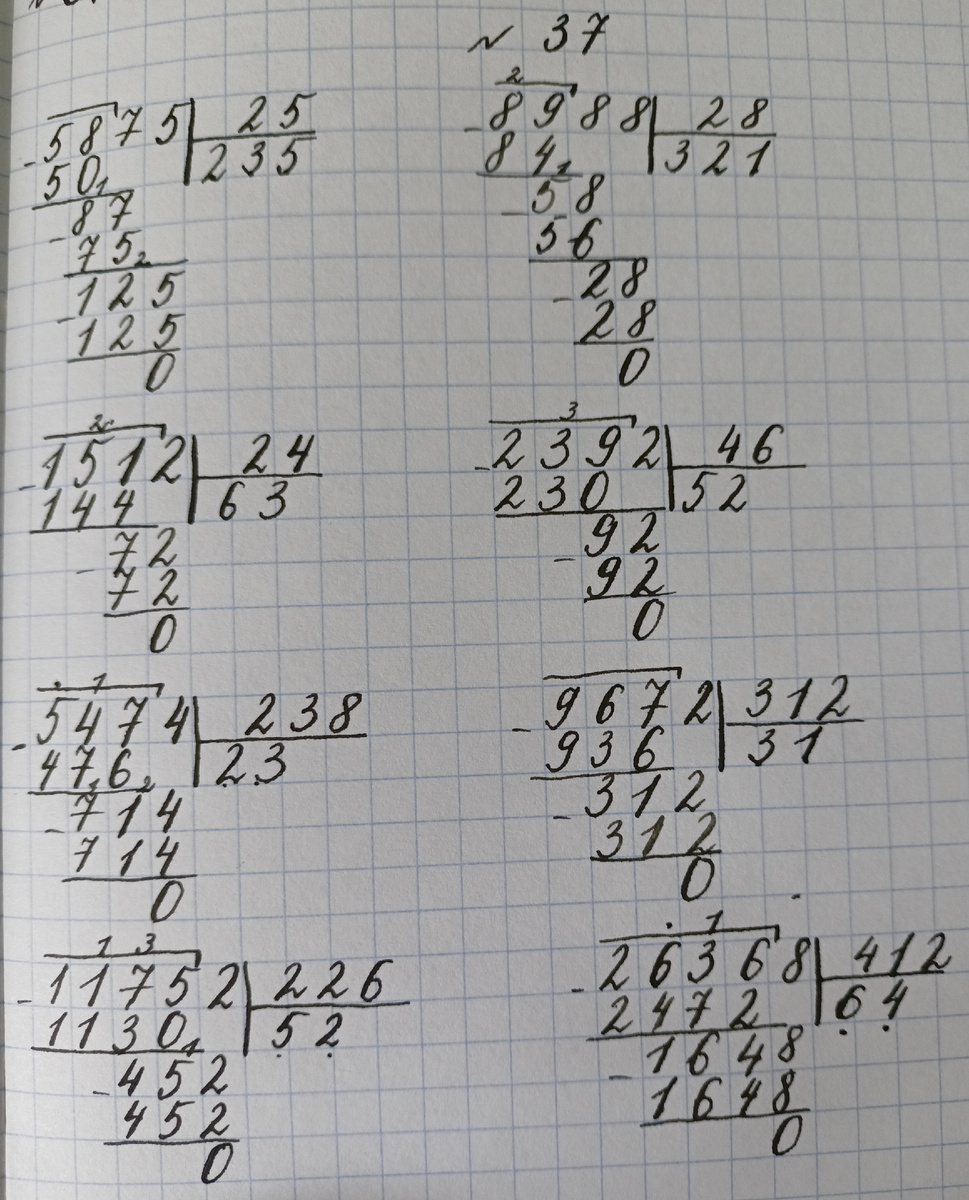 № 37
5875 25
- 50 235
87
- 75
125
- 125
0
2
8988 28
- 84 321
58
- 56
28
- 28
0
2
1512 24
- 144 63
72
- 72
0
3
2392 46
- 230 52
92
- 92
0
1
5474 238
- 476 23
714
- 714
0
9672 312
- 936 31
312
- 312
0
1 3
11752 226
- 1130 52
452
- 452
0
1
26368 412
- 2472 64
1648
- 1648
0